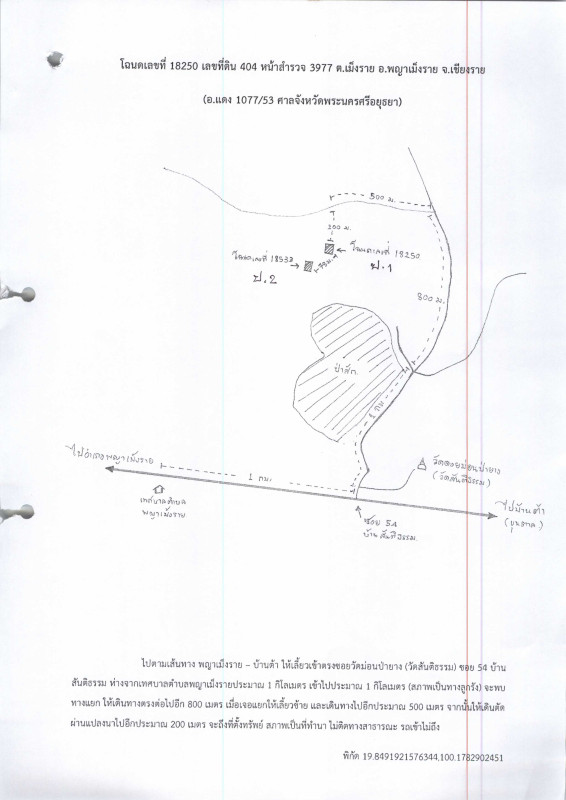 โฉนดเลขที่ 18250 เลขที่ดิน 404 หน้าสำรวจ 3977 ต.เม็งราย อ.พญาเม็งราย จ.เชียงราย
(อ.แดง 1077/53 ศาลจังหวัดพระนครศรีอยุธยา)
500 ม.
200 ม.
โฉนดเลขที่ 18250
ป.1
โฉนดเลขที่
ป.2
800 ม.
ป่าสัก
1 กม
ไปอำเภอพญาเม็งราย
1 กม.
วัดดอยม่อนป่ายาง
(วัดสันติธรรม)
เทศบาลตำบล
พญาเม็งราย
ซอย 54
บ้านสันติธรรม
ไปบ้านต้า
(ขุนตาล)
ไปตามเส้นทาง พญาเม็งราย – บ้านต้า ให้เลี้ยวเข้าตรงซอยวัดม่อนป่ายาง (วัดสันติธรรม) ซอย 54 บ้าน
สันติธรรม ห่างจากเทศบาลตำบลพญาเม็งรายประมาณ 1 กิโลเมตร เข้าไปประมาณ 1 กิโลเมตร (สภาพเป็นทางลูกรัง) จะพบ
ทางแยก ให้เดินทางตรงต่อไปอีก 800 เมตร เมื่อเจอแยกให้เลี้ยวซ้าย และเดินทางไปอีกประมาณ 500 เมตร จากนั้นให้เดินตัด
ผ่านแปลงนาไปอีกประมาณ 200 เมตร จะถึงที่ตั้งทรัพย์ สภาพเป็นที่ทำนา ไม่ติดทางสาธารณะ รถเข้าไม่ถึง
พิกัด 19.8491921576344,100.1782902451